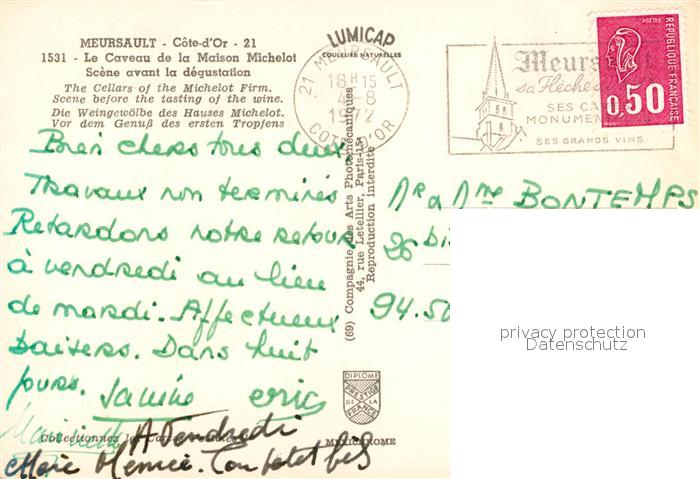 MEURSAULT - Côte-d'Or - 21
1531 - Le Caveau de la Maison Michelot
Scène avant la dégustation
The Cellars of the Michelot Firm.
Scene before the tasting of the wine.
Die Weingewölbe des Hauses Michelot.
Vor dem Genuß des ersten Tropfens
LUMICAP
COULEURS NATURELLES
21 MEURSAULT
18H15
8
1972
COTE D'OR
Meurs
sa Flèche
SES CA
MONUMEN
SES GRANDS VINS
POSTES
0,50
REPUBLIQUE FRANÇAISE
chers tous deux
Travaux non terminés
Retardons notre retour
à vendredi au lieu
de mardi. Affectueux
baisers. Dans huit
jours. Janine eric
A Vendredi
petit fils
(69) Compagnie des Arts Photomécaniques
44, rue Letellier, Paris-15e
Reproduction interdite
Mr & Mme BONTEMPS
26
94.50
DIPLOME
PRESTIGE
DE LA
FRANCE
Collectionnez les Cartes
MEXICHROME
privacy protection
Datenschutz